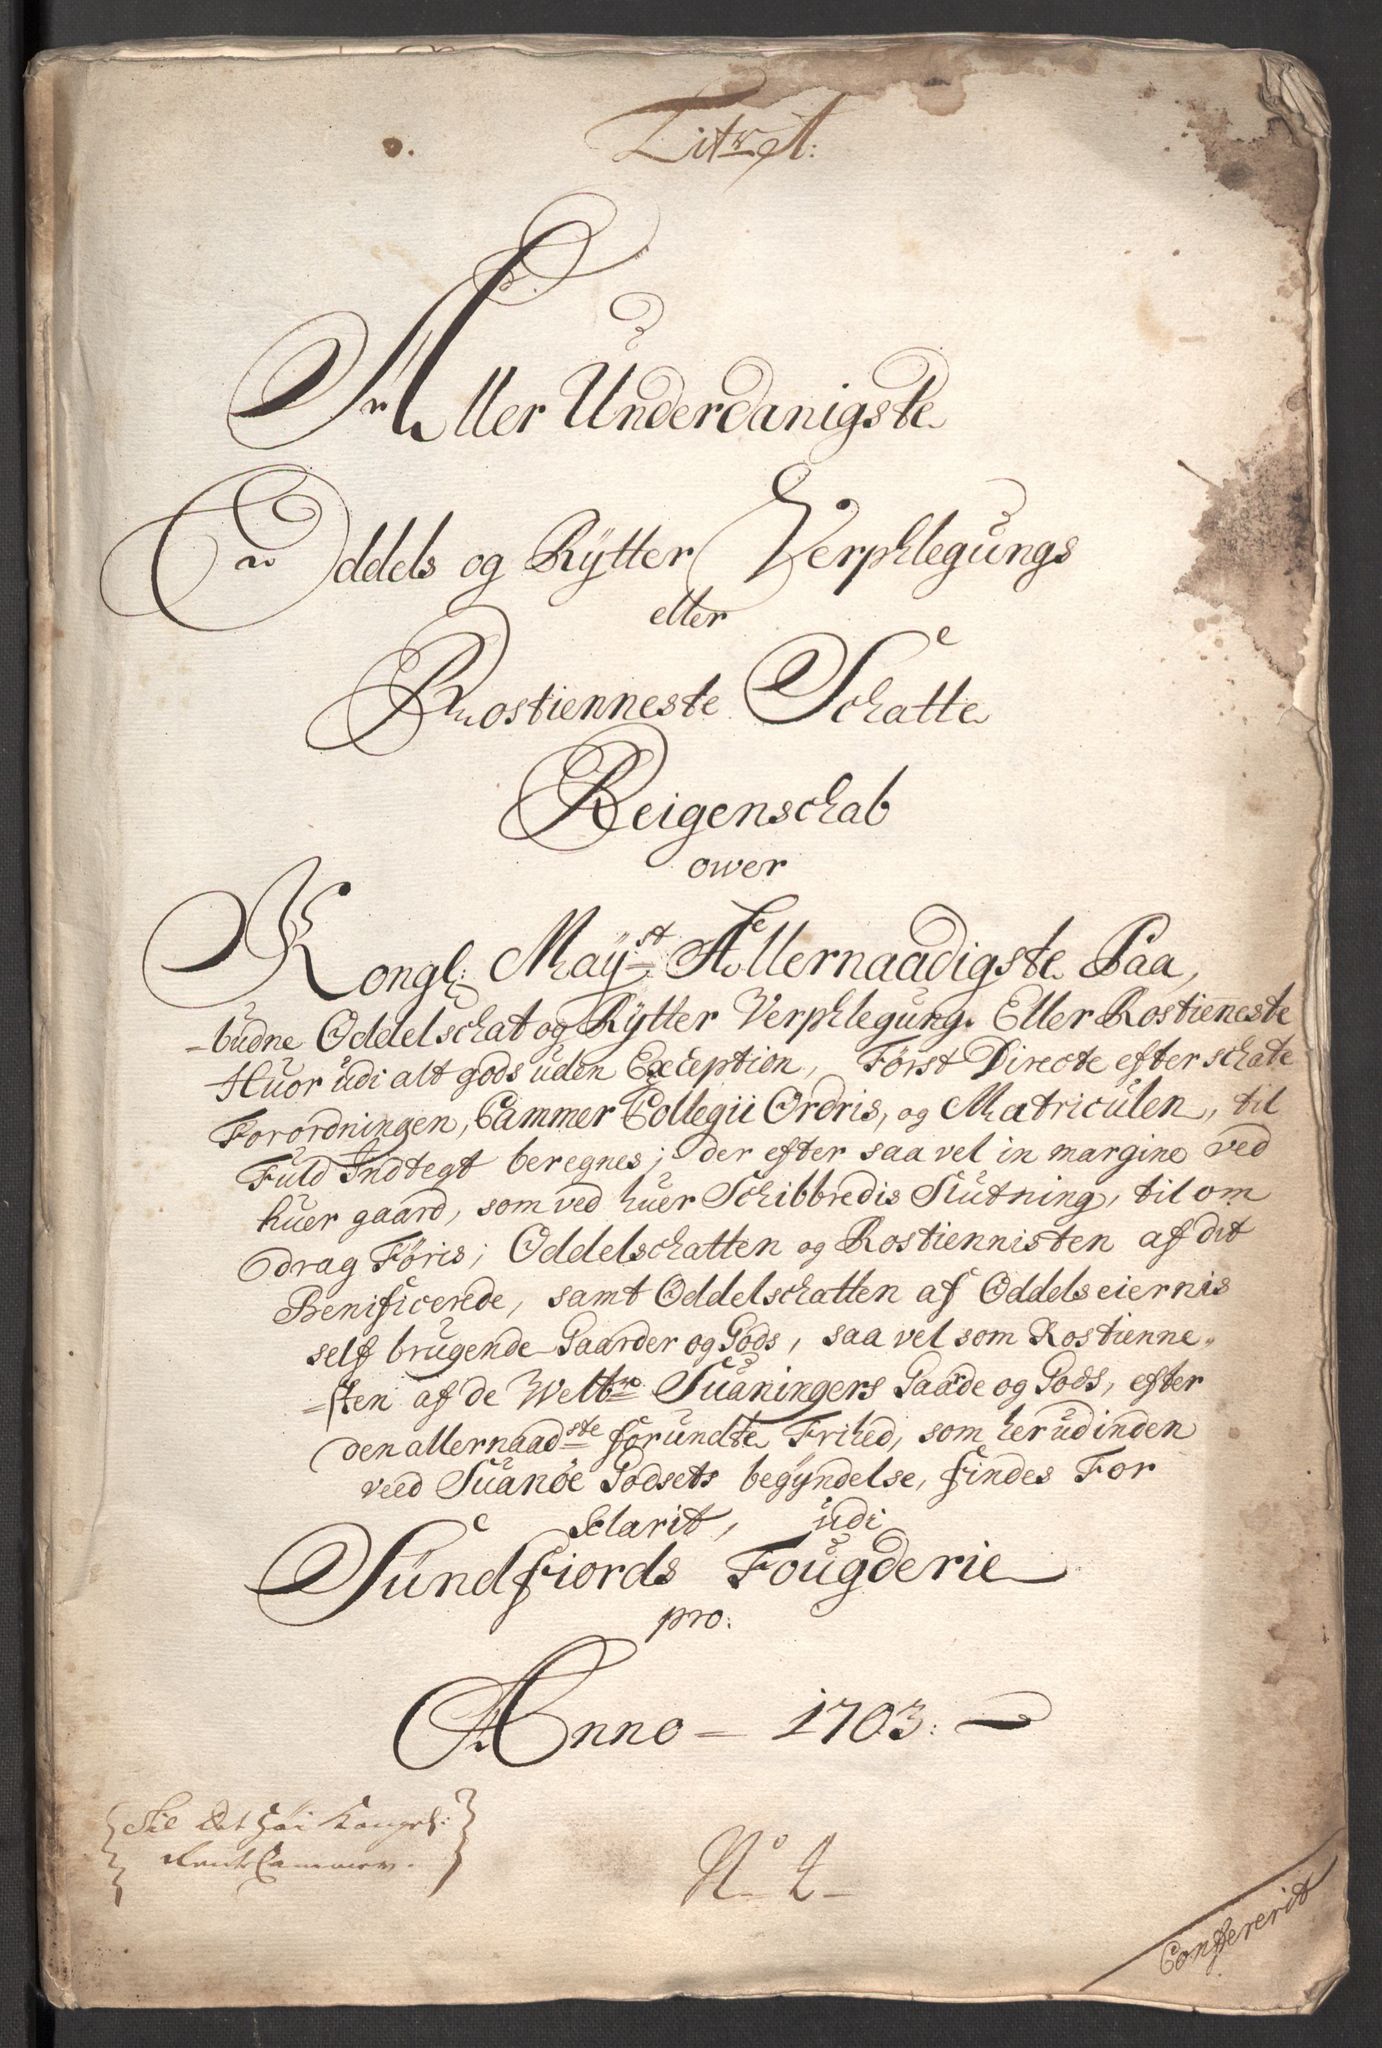 Litr A:
Aller Underdanigste
Oddels og Rÿtter Verphlegungs
eller
Rostienneste Schatte
Reigenschab
ower
Kongl: Maÿst Allernaadigste Paa,
-budne Oddelschat og Rÿtter Verphlegung. Eller Rostieneste
Huor udi alt gods uden Exception, Først Directe efter schate
Forordningen, Cammer Collegii Ordris, og Matriculen, til
Fuld Indtegt beregnes; der efter saa vel in margine ved
huer gaard, som ved huer Schibbredis Slutning, til om
drag Føris; Oddelschatten og Rostiennisten af dit
Benificerede, samt Oddelschatten af Oddels eiernis
self brugende Gaarder og Gods, saa vel som Rostienne-
-sten af de Welbne Suaningers Gaarde og Gods, efter
den allernaadste forundte Frihed, som her udinden
veed Suanøe Godsets begÿndelse, findes For
Clarit, udi
Sundfiords Fougderie
pro:
Anno - 1703:
Til Det Høi Kongel:
Rente Cammer.
No 2
Confererit